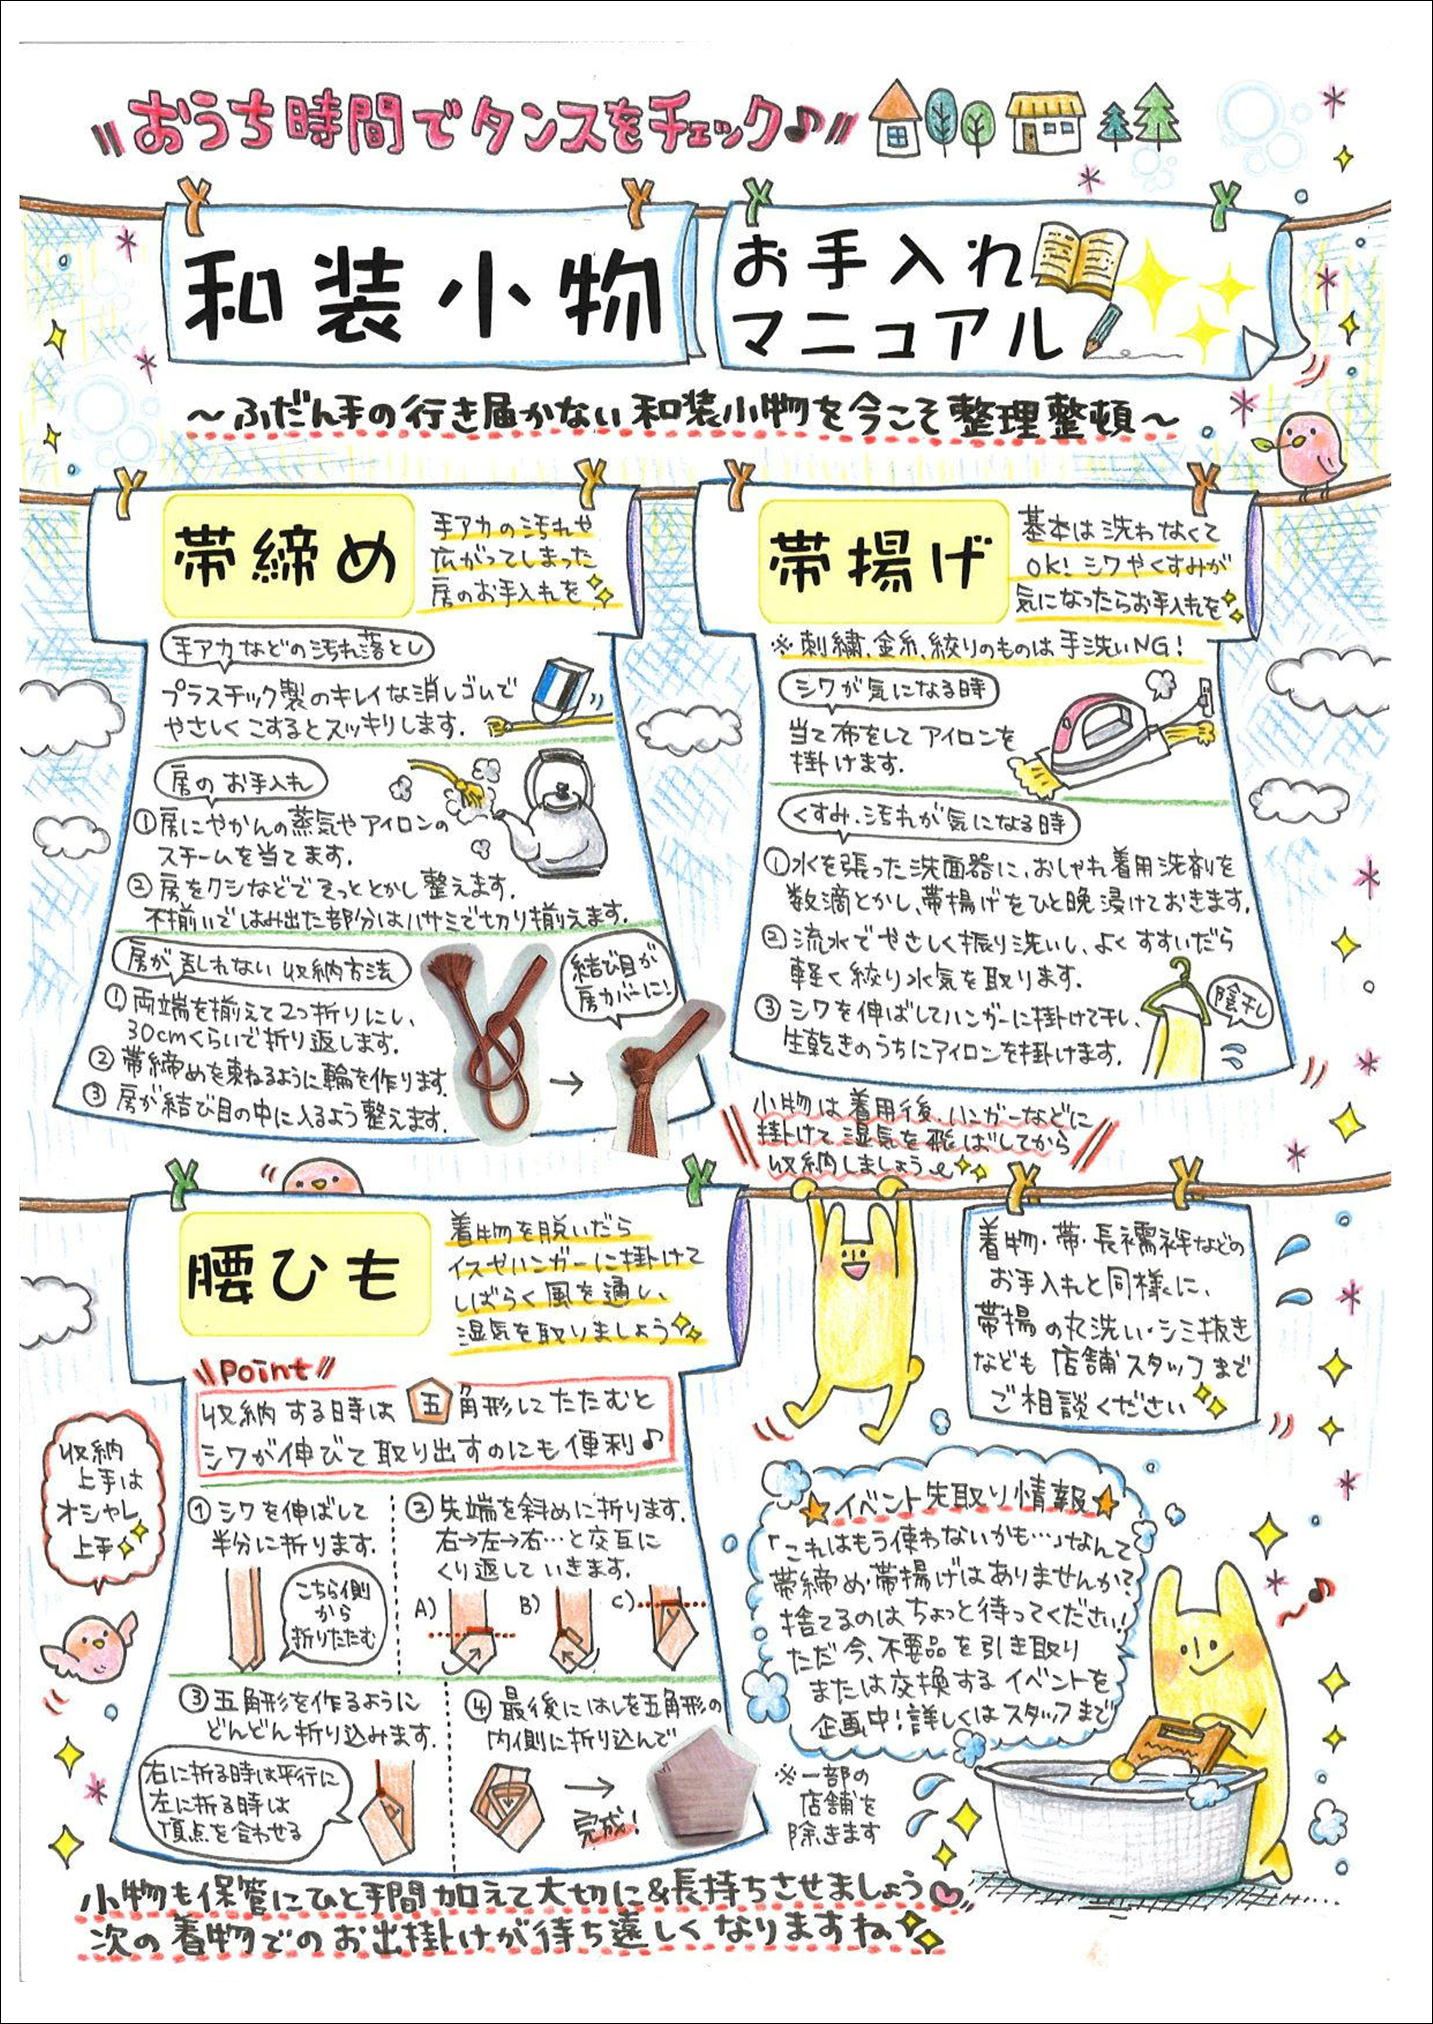 おうち時間でタンスをチェック♪
和装小物
お手入れ
マニュアル
～ふだん手の行き届かない和装小物を今こそ整理整頓～
帯締め
手アカの汚れや
広がってしまった
房のお手入れを
手アカなどの汚れ落とし
プラスチック製のキレイな消しゴムで
やさしくこするとスッキリします.
房のお手入れ
①房にやかんの蒸気やアイロンの
スチームを当てます.
②房をクシなどでそっととかし整えます.
不揃いではみ出た部分はハサミで切り揃えます.
房が乱れない収納方法
①両端を揃えて2つ折りにし、
30cmくらいで折り返します.
②帯締めを束ねるように輪を作ります.
③房が結び目の中に入るよう整えます.
結び目が
房カバーに!
帯揚げ
基本は洗わなくて
OK! シワやくすみが
気になったらお手入れを
※刺繍、金糸、絞りのものは手洗いNG!
シワが気になる時
当て布をしてアイロンを
掛けます.
くすみ・汚れが気になる時
①水を張った洗面器に、おしゃれ着用洗剤を
数滴とかし、帯揚げをひと晩浸けておきます.
②流水でやさしく振り洗いし、よくすすいだら
軽く絞り水気を取ります.
③シワを伸ばしてハンガーに掛けて干し、
生乾きのうちにアイロンを掛けます.
陰干し
小物は着用後、ハンガーなどに
掛けて湿気を飛ばしてから
収納しましょう
腰ひも
着物を脱いだら
イスやハンガーに掛けて
しばらく風を通し、
湿気を取りましょう
Point
収納する時は五角形にたたむと
シワが伸びて取り出すのにも便利♪
収納
上手は
オシャレ
上手
①シワを伸ばして
半分に折ります.
こちら側
から
折りたたむ
②先端を斜めに折ります.
右→左→右…と交互に
くり返していきます.
A)
B)
C)
③五角形を作るように
どんどん折り込みます.
右に折る時は平行に
左に折る時は
頂点を合わせる
④最後にはしを五角形の
内側に折り込んで
完成!
着物・帯・長襦袢などの
お手入れと同様に、
帯揚の丸洗い・シミ抜き
なども店舗スタッフまで
ご相談ください
★イベント先取り情報★
「これはもう使わないかも…」なんて
帯締め・帯揚げはありませんか?
捨てるのはちょっと待ってください!
ただ今、不要品を引き取り
または交換するイベントを
企画中!詳しくはスタッフまで
※一部の
店舗を
除きます
小物も保管にひと手間加えて大切に&長持ちさせましょう
次の着物でのお出掛けが待ち遠しくなりますね